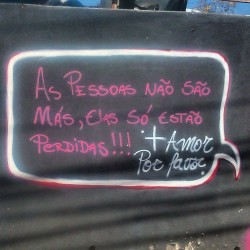 As Pessoas não são
más, elas só estão
perdidas!!! + Amor
Por favor.